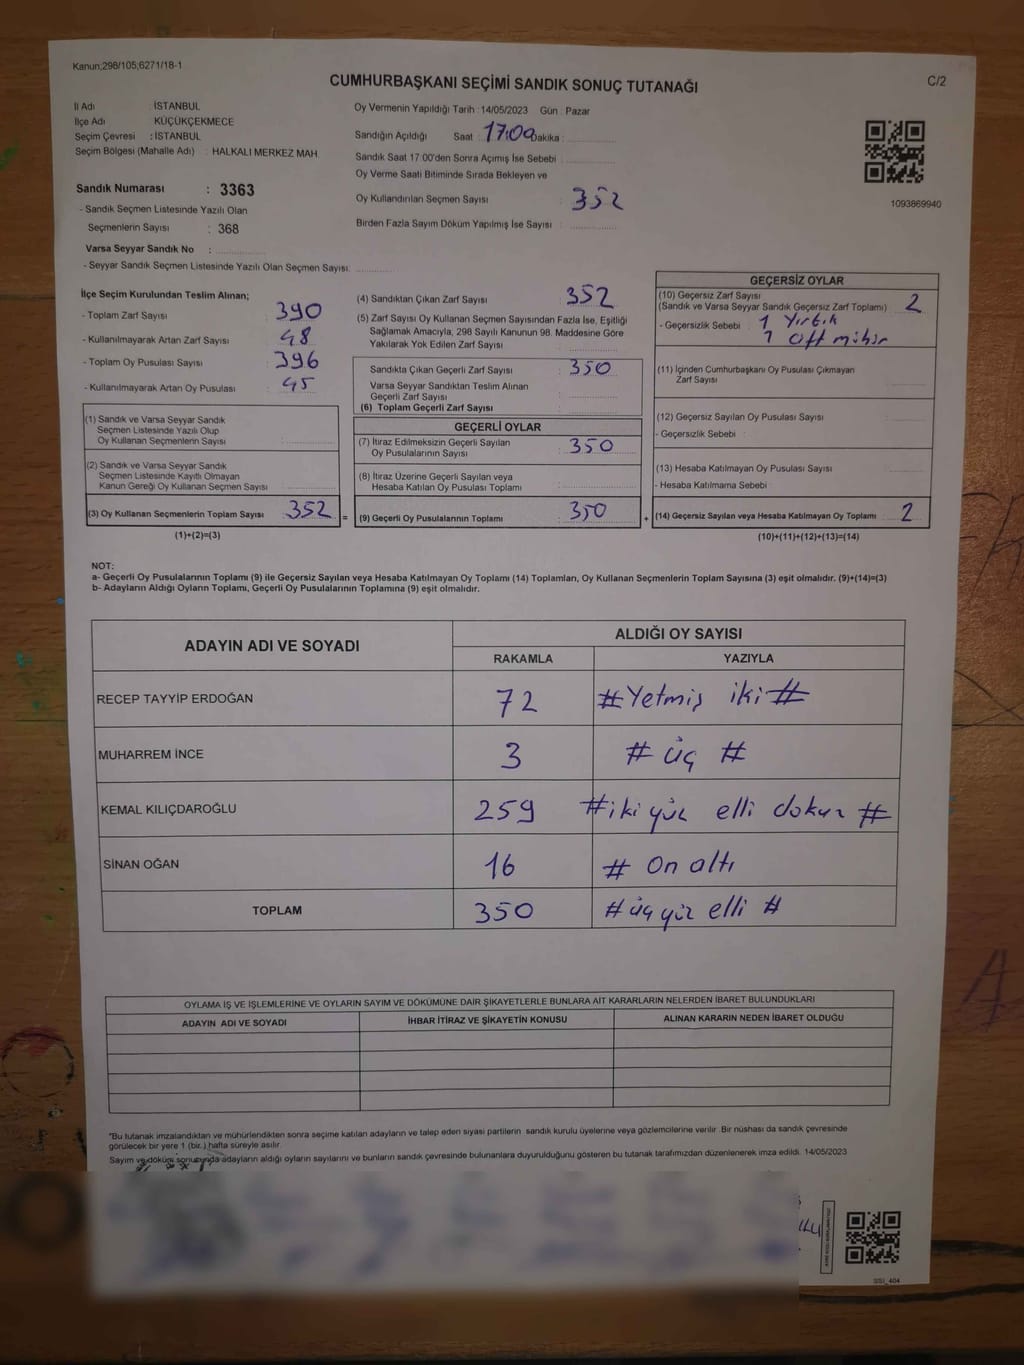 Kanun;298/105;6271/18-1
CUMHURBAŞKANI SEÇİMİ SANDIK SONUÇ TUTANAĞI
C/2
İl Adı : İSTANBUL
İlçe Adı KÜÇÜKÇEKMECE
Seçim Çevresi : İSTANBUL
Seçim Bölgesi (Mahalle Adı) : HALKALI MERKEZ MAH.
Oy Vermenin Yapıldığı Tarih : 14/05/2023 Gün : Pazar
Sandığın Açıldığı Saat : 17:00 Dakika :
Sandık Saat 17:00'den Sonra Açımış İse Sebebi :
Oy Verme Saati Bitiminde Sırada Bekleyen ve
Oy Kullandırılan Seçmen Sayısı : 352
Birden Fazla Sayım Döküm Yapılmış İse Sayısı :
1093869940
Sandık Numarası : 3363
- Sandık Seçmen Listesinde Yazılı Olan
Seçmenlerin Sayısı : 368
Varsa Seyyar Sandık No :
- Seyyar Sandık Seçmen Listesinde Yazılı Olan Seçmen Sayısı:
İlçe Seçim Kurulundan Teslim Alınan;
- Toplam Zarf Sayısı : 390
- Kullanılmayarak Artan Zarf Sayısı : 48
- Toplam Oy Pusulası Sayısı : 396
- Kullanılmayarak Artan Oy Pusulası : 45
(1) Sandık ve Varsa Seyyar Sandık
Seçmen Listesinde Yazılı Olup
Oy Kullanan Seçmenlerin Sayısı :
(2) Sandık ve Varsa Seyyar Sandık
Seçmen Listesinde Kayıtlı Olmayan
Kanun Gereği Oy Kullanan Seçmen Sayısı :
(3) Oy Kullanan Seçmenlerin Toplam Sayısı : 352 =
(1)+(2)=(3)
(4) Sandıktan Çıkan Zarf Sayısı : 352
(5) Zarf Sayısı Oy Kullanan Seçmen Sayısından Fazla İse, Eşitliği
Sağlamak Amacıyla, 298 Sayılı Kanunun 98. Maddesine Göre
Yakılarak Yok Edilen Zarf Sayısı :
Sandıkta Çıkan Geçerli Zarf Sayısı : 350
Varsa Seyyar Sandıktan Teslim Alınan
Geçerli Zarf Sayısı :
(6) Toplam Geçerli Zarf Sayısı :
GEÇERLİ OYLAR
(7) İtiraz Edilmeksizin Geçerli Sayılan
Oy Pusulalarının Sayısı : 350
(8) İtiraz Üzerine Geçerli Sayılan veya
Hesaba Katılan Oy Pusulası Toplamı :
(9) Geçerli Oy Pusulalarının Toplamı : 350 +
GEÇERSİZ OYLAR
(10) Geçersiz Zarf Sayısı
(Sandık ve Varsa Seyyar Sandık Geçersiz Zarf Toplamı) : 2
- Geçersizlik Sebebi : 1 Yırtık
1 Çift mühür
(11) İçinden Cumhurbaşkanı Oy Pusulası Çıkmayan
Zarf Sayısı :
(12) Geçersiz Sayılan Oy Pusulası Sayısı :
- Geçersizlik Sebebi :
(13) Hesaba Katılmayan Oy Pusulası Sayısı :
- Hesaba Katılmama Sebebi :
(14) Geçersiz Sayılan veya Hesaba Katılmayan Oy Toplamı : 2
(10)+(11)+(12)+(13)=(14)
NOT:
a- Geçerli Oy Pusulalarının Toplamı (9) ile Geçersiz Sayılan veya Hesaba Katılmayan Oy Toplamı (14) Toplamları, Oy Kullanan Seçmenlerin Toplam Sayısına (3) eşit olmalıdır. (9)+(14)=(3)
b- Adayların Aldığı Oyların Toplamı, Geçerli Oy Pusulalarının Toplamına (9) eşit olmalıdır.
ADAYIN ADI VE SOYADI
ALDIĞI OY SAYISI
RAKAMLA YAZIYLA
RECEP TAYYİP ERDOĞAN 72 #Yetmiş iki#
MUHARREM İNCE 3 # üç #
KEMAL KILIÇDAROĞLU 259 #iki yüz elli dokuz #
SİNAN OĞAN 16 # On altı
TOPLAM 350 # üç yüz elli #
OYLAMA İŞ VE İŞLEMLERİNE VE OYLARIN SAYIM VE DÖKÜMÜNE DAİR ŞİKAYETLERLE BUNLARA AİT KARARLARIN NELERDEN İBARET BULUNDUKLARI
ADAYIN ADI VE SOYADI İHBAR İTİRAZ VE ŞİKAYETİN KONUSU ALINAN KARARIN NEDEN İBARET OLDUĞU
"Bu tutanak imzalandıktan ve mühürlendikten sonra seçime katılan adayların ve talep eden siyasi partilerin sandık kurulu üyelerine veya gözlemcilerine verilir. Bir nüshası da sandık çevresinde
görülecek bir yere 1 (bir ) hafta süreyle asılır.
Sayım ve döküm sonucunda adayların aldığı oyların sayılarını ve bunların sandık çevresinde bulunanlara duyurulduğunu gösteren bu tutanak tarafımızdan düzenlenerek imza edildi. 14/05/2023
SSI_404